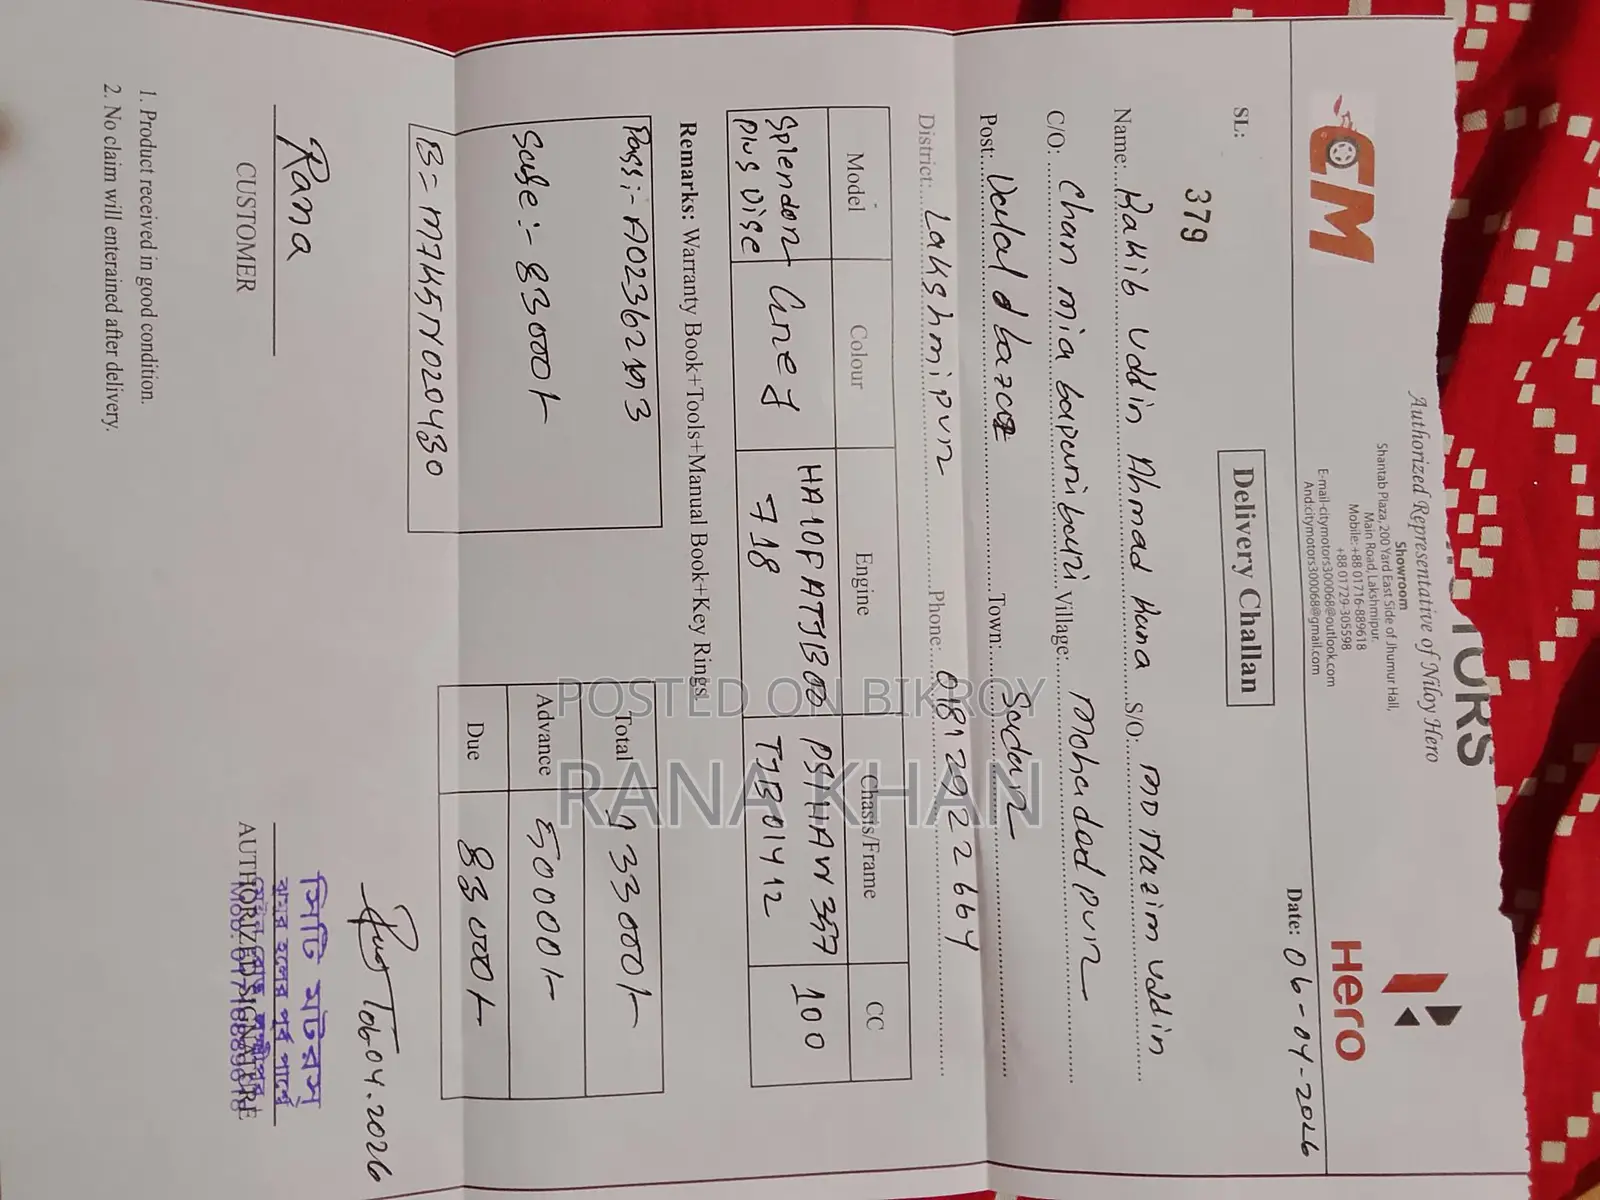 CM
TORS
Authorized Representative of Niloy Hero
Showroom
Shantab Plaza, 200 Yard East Side of Jhumur Hall,
Main Road, Lakshmipur.
Mobile: +88 01716-889618
+88 01729-305598
E-mail-citymotors300068@outlook.com
And:citymotors300068@gmail.com
Hero
SL: 379
Delivery Challan
Date: 06-04-2026
Name: Rakib uddin Ahmad Rana S/O: MD Nazim uddin
C/O: Chan mia baparibari Village: Mohadadpur
Post: Dalal bazar Town: Sadar
District: Lakshmipur Phone: 01812922664
Model Colour Engine Chasis/Frame CC
Splendor Plus Disc Grey HA10FATJB00718 PS1HAW357TJB01412 100
Remarks: Warranty Book+Tools+Manual Book+Key Rings
Pass:- A02362193
Safe:- 83000/-
B= M7K5N020430
Total 133000/-
Advance 50000/-
Due 83000/-
Rana
CUSTOMER
06.04.2026
সিটি মটরস্
ঝুমুর হলের পূর্ব পার্শ্বে
AUTHORIZED SIGNATURE
Mob: 01716889618
1. Product received in good condition.
2. No claim will enterained after delivery.
POSTED ON BIKROY
RANA KHAN